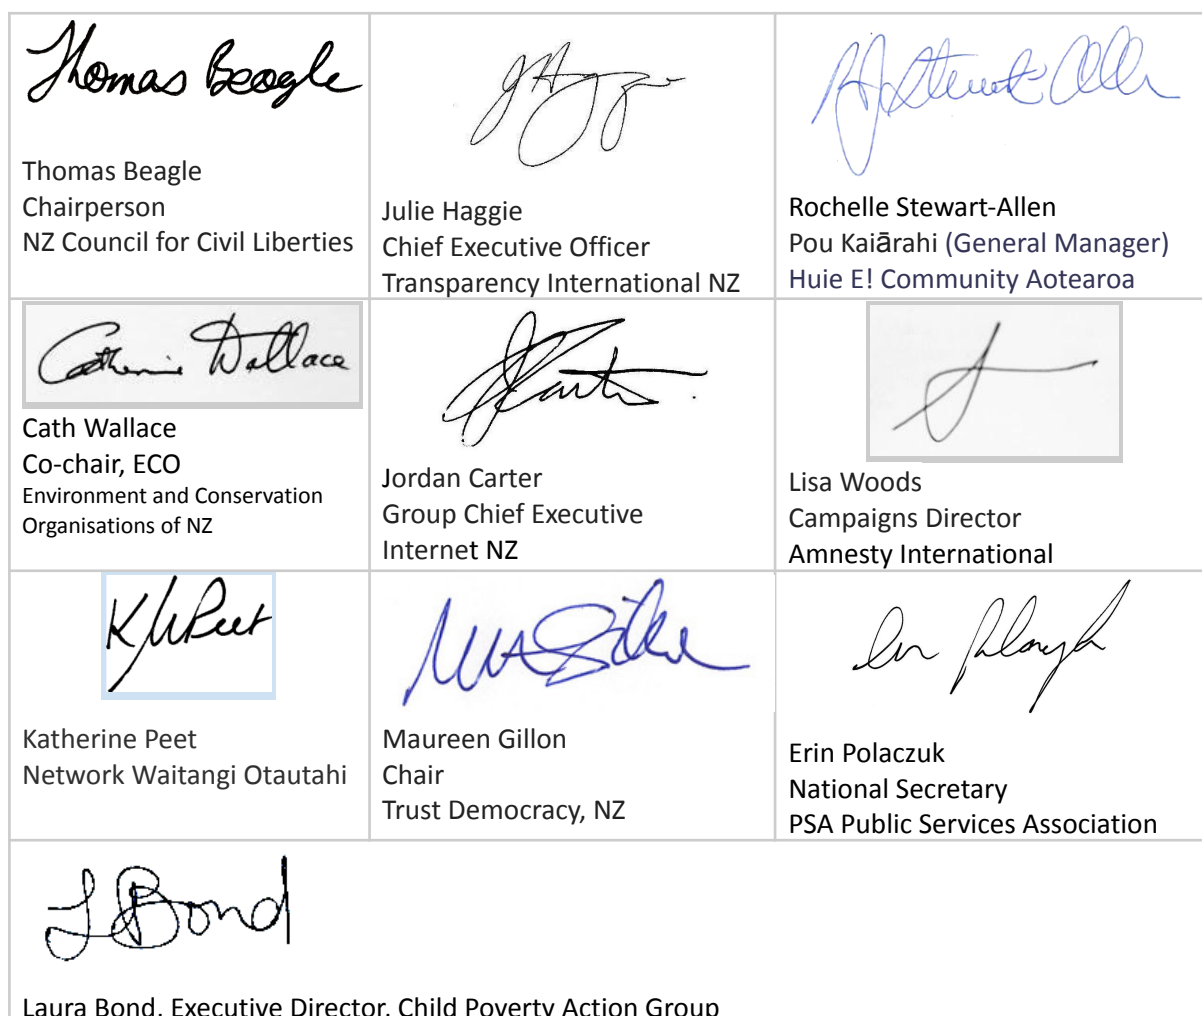 Thomas Beagle
Thomas Beagle
Chairperson
NZ Council for Civil Liberties
J Haggie
Julie Haggie
Chief Executive Officer
Transparency International NZ
R Stewart Allen
Rochelle Stewart-Allen
Pou Kaiārahi (General Manager)
Huie E! Community Aotearoa
Catherine Wallace
Cath Wallace
Co-chair, ECO
Environment and Conservation
Organisations of NZ
J Carter
Jordan Carter
Group Chief Executive
Internet NZ
Lisa Woods
Campaigns Director
Amnesty International
K Peet
Katherine Peet
Network Waitangi Otautahi
Maureen Gillon
Chair
Trust Democracy, NZ
Erin Polaczuk
National Secretary
PSA Public Services Association
L Bond
Laura Bond, Executive Director, Child Poverty Action Group